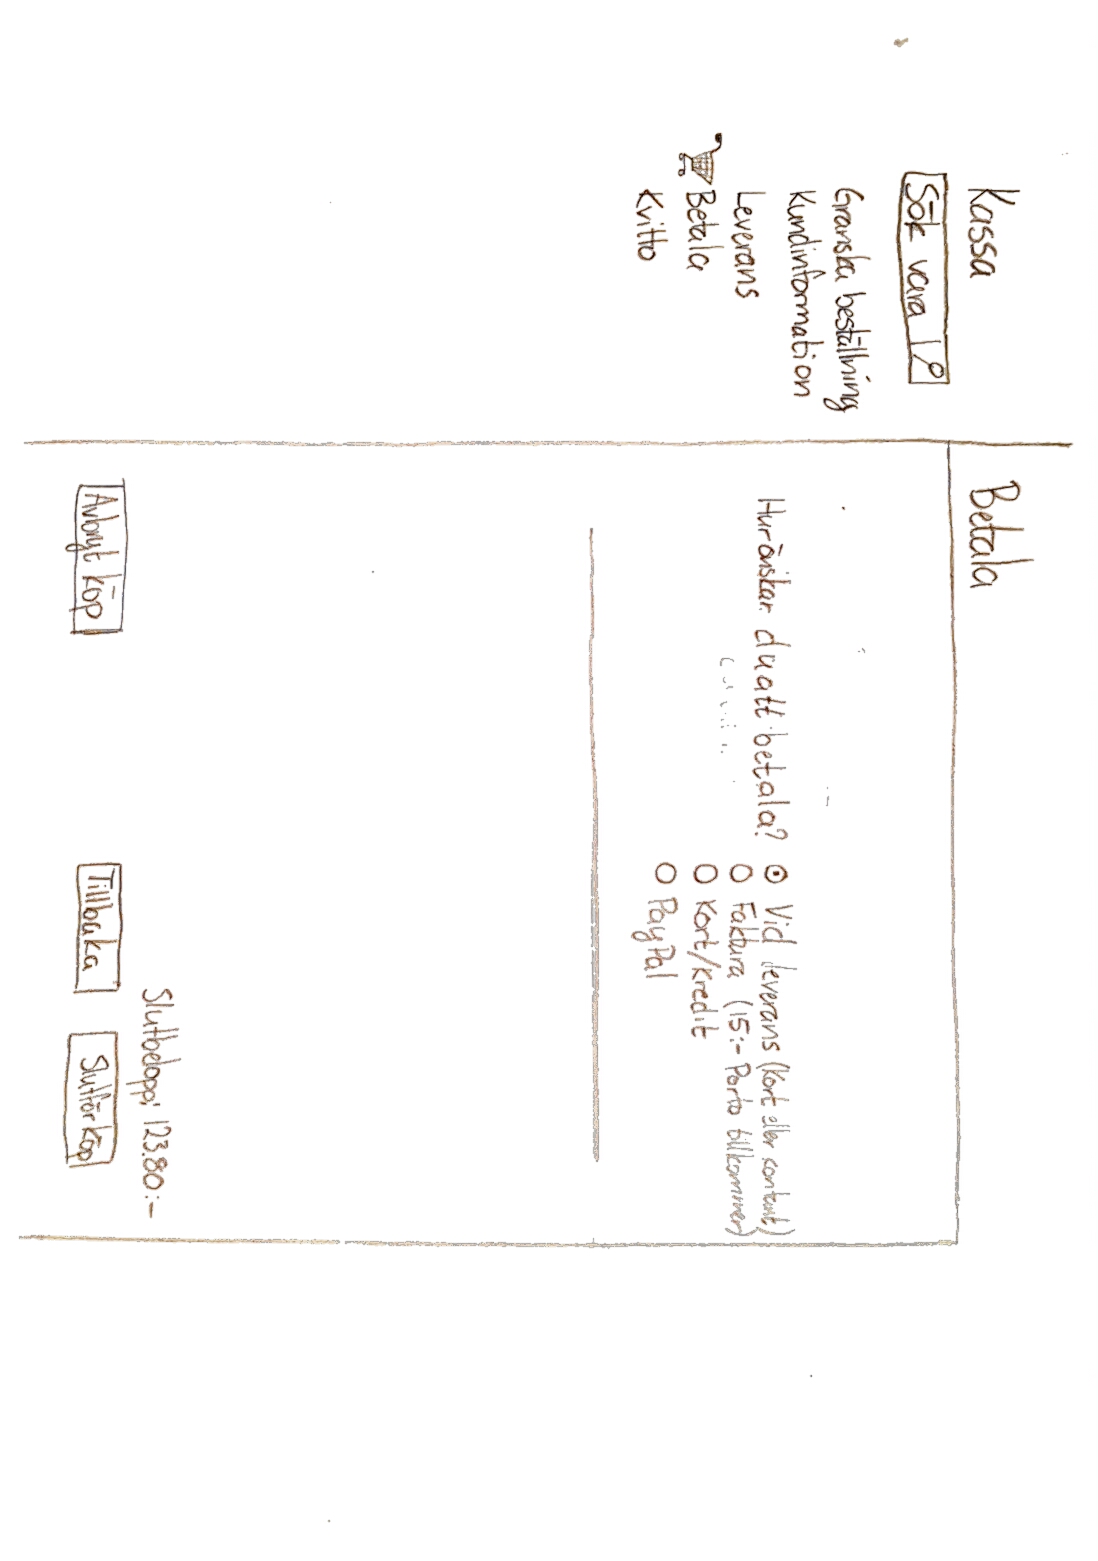 Kassa
Sök vara
Granska beställning
Kundinformation
Leverans
Betala
Kvitto
Betala
Hur önskar du att betala?
Vid leverans (Kort eller contant)
Faktura (15:- Porto tillkommer)
Kort/Kredit
PayPal
Slutbelopp: 123.80:-
Avbryt köp
Tillbaka
Slutför köp